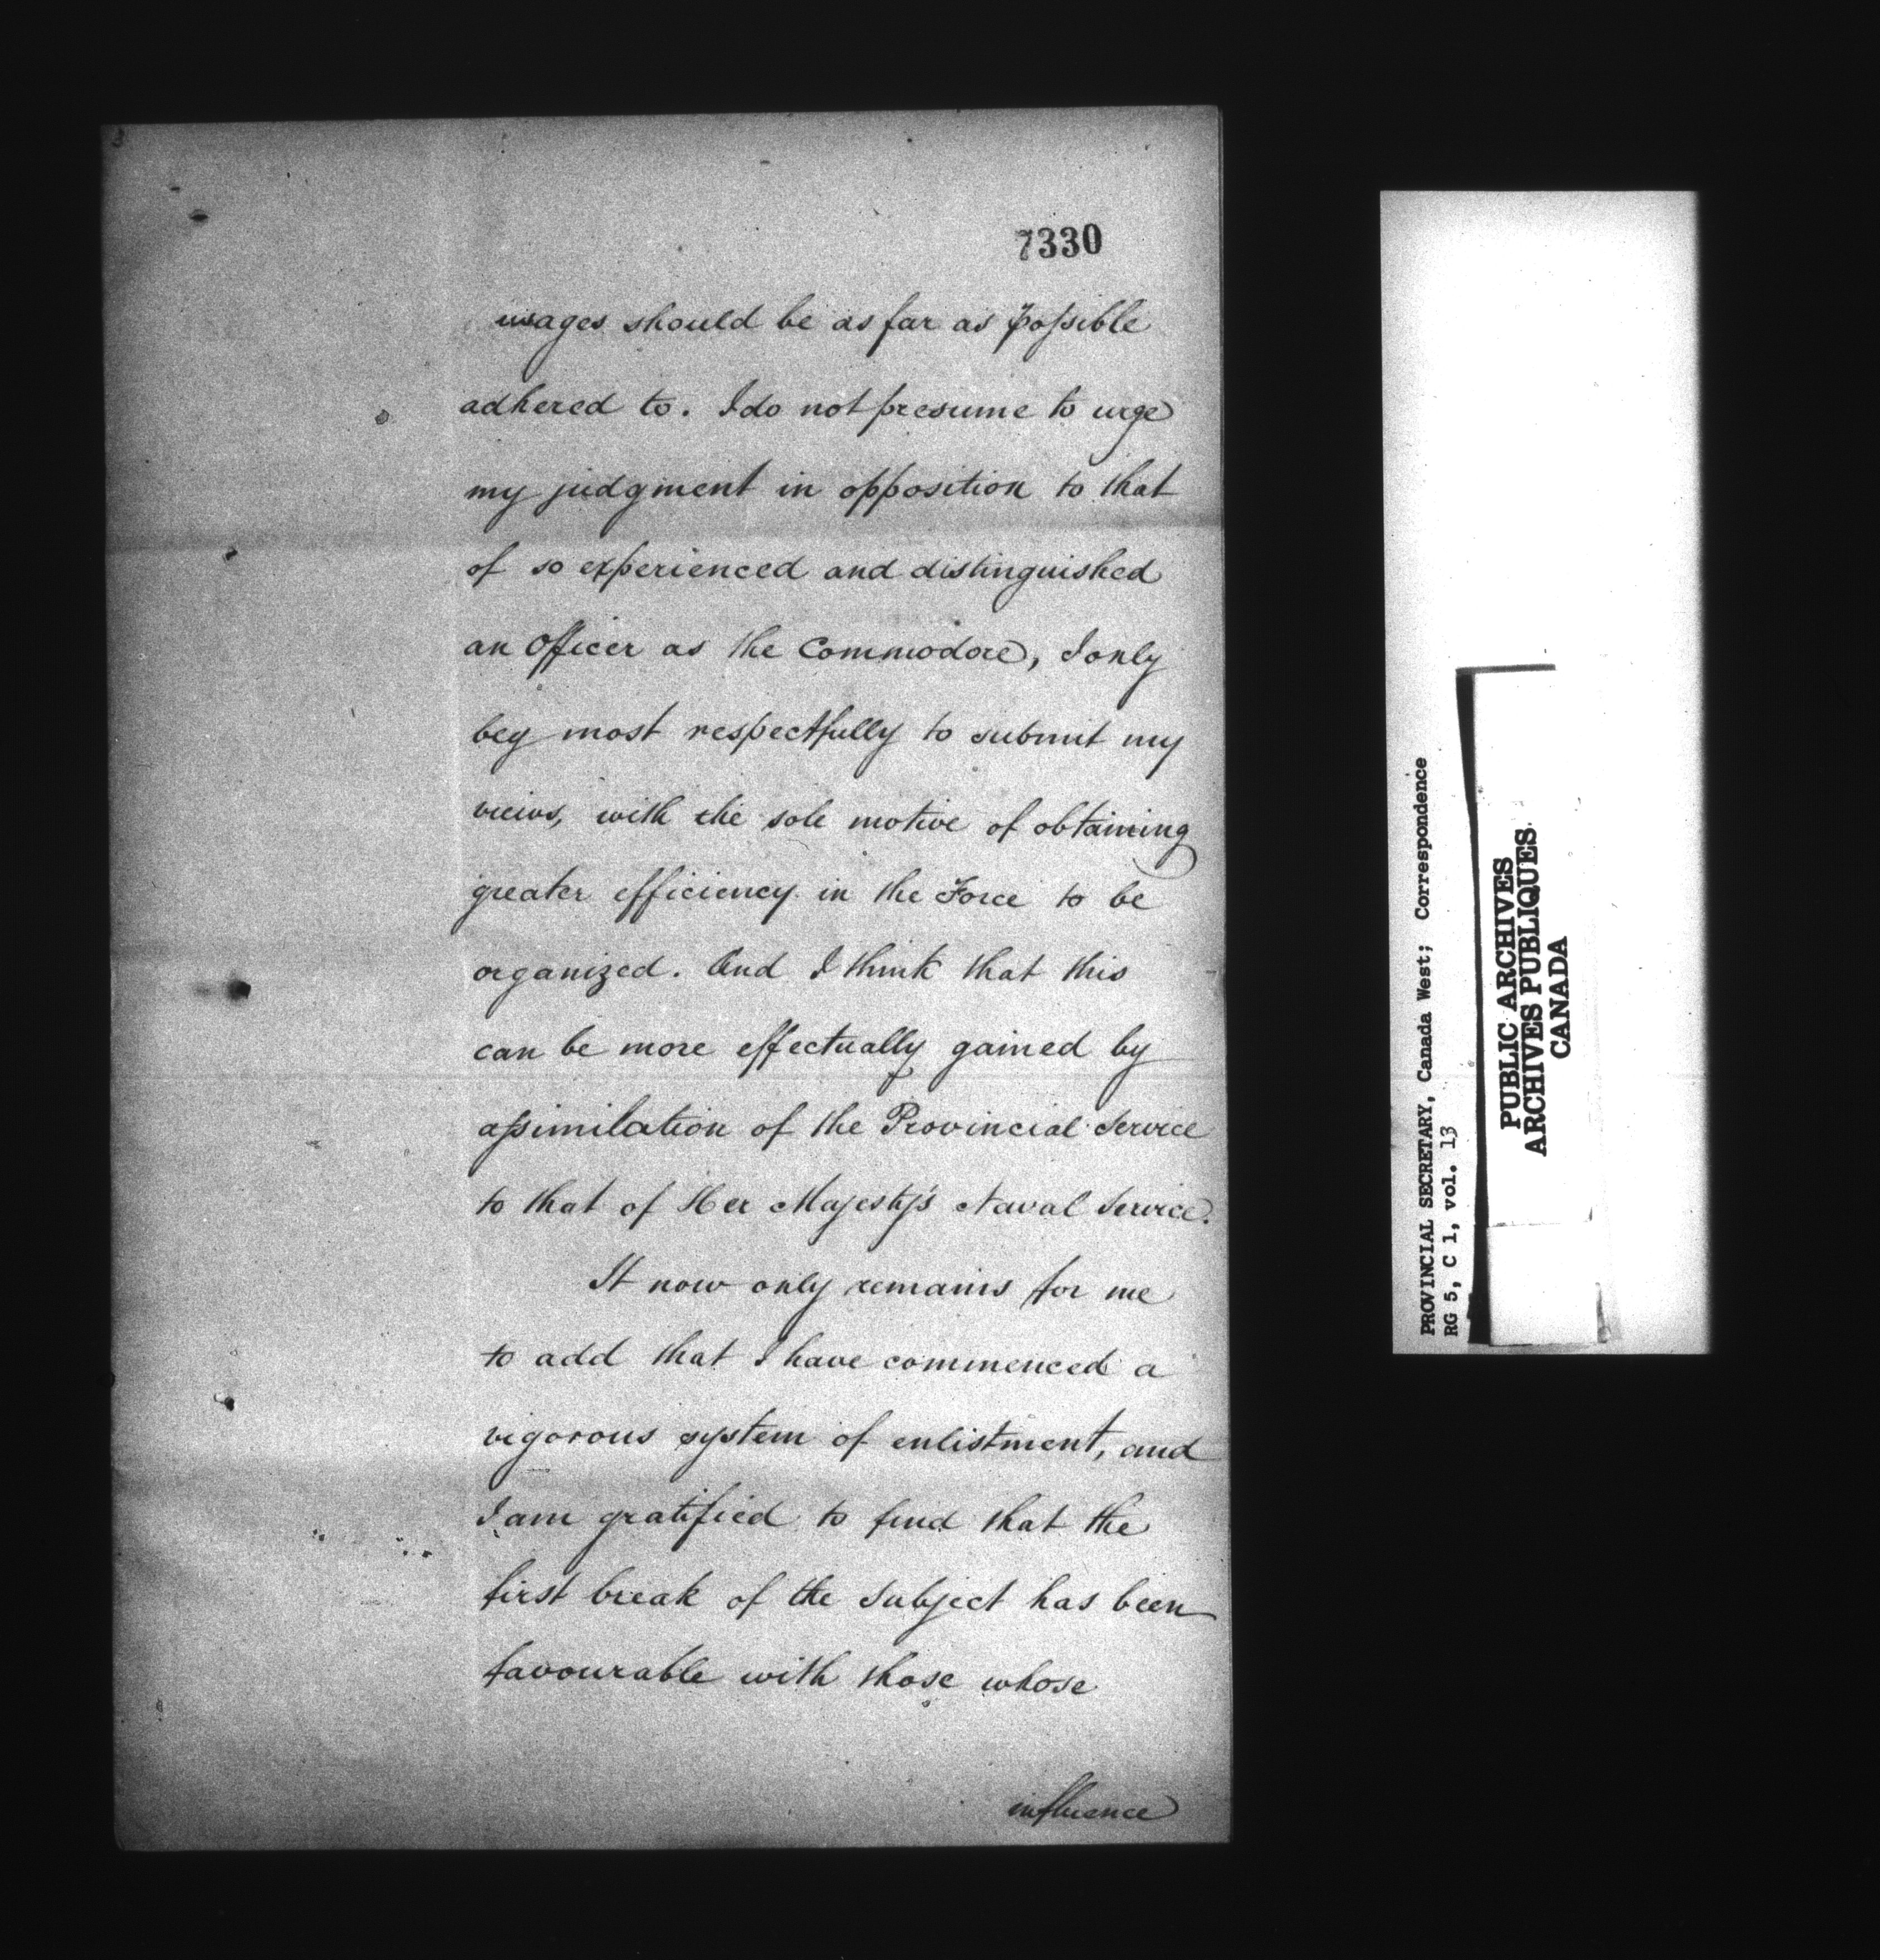 7330
usages should be as far as possible
adhered to. I do not presume to urge
my judgment in opposition to that
of so experienced and distinguished
an Officer as the Commodore, I only
beg most respectfully to submit my
views, with the sole motive of obtaining
greater efficiency in the Force to be
organized. And I think that this
can be more effectually gained by
assimilation of the Provincial Service
to that of Her Majesty's Naval Service.
It now only remains for me
to add that I have commenced a
vigorous system of enlistment, and
I am gratified to find that the
first break of the subject has been
favourable with those whose
influence
PROVINCIAL SECRETARY, Canada West; Correspondence
RG 5, C 1, vol. 13
PUBLIC ARCHIVES
ARCHIVES PUBLIQUES
CANADA